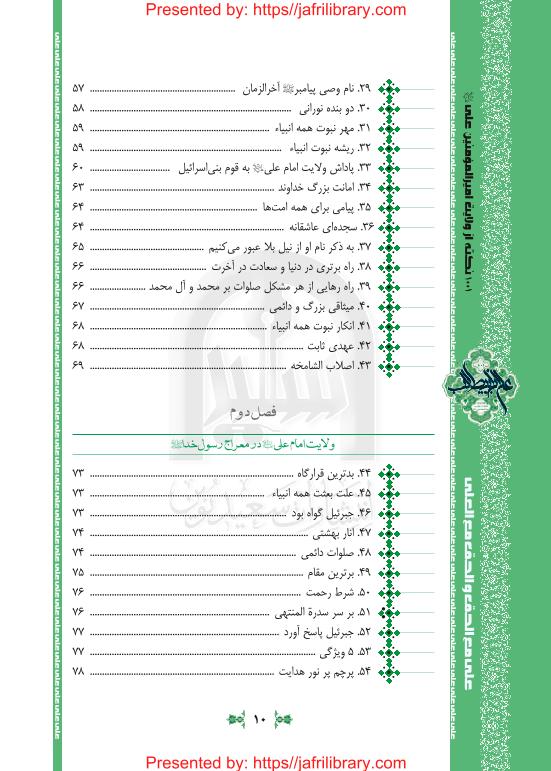 Presented by: https//jafrilibrary.com
۲۹. نام وصی پیامبرﷺ آخرالزمان ........ ۵۷
۳۰. دو بنده نورانی ........ ۵۸
۳۱. مهر نبوت همه انبیاء ........ ۵۹
۳۲. ریشه نبوت انبیاء ........ ۵۹
۳۳. پاداش ولایت امام علی به قوم بنی‌اسرائیل ........ ۶۰
۳۴. امانت بزرگ خداوند ........ ۶۳
۳۵. پیامی برای همه امت‌ها ........ ۶۴
۳۶. سجده‌ای عاشقانه ........ ۶۴
۳۷. به ذکر نام او از نیل بلا عبور می‌کنیم ........ ۶۵
۳۸. راه برتری در دنیا و سعادت در آخرت ........ ۶۶
۳۹. راه رهایی از هر مشکل صلوات بر محمد و آل محمد ........ ۶۶
۴۰. میثاقی بزرگ و دائمی ........ ۶۷
۴۱. انکار نبوت همه انبیاء ........ ۶۸
۴۲. عهدی ثابت ........ ۶۸
۴۳. اصلاب الشامخه ........ ۶۹
فصل دوم
ولایت امام علی در معراج رسول خداﷺ
۴۴. بدترین قرارگاه ........ ۷۳
۴۵. علت بعثت همه انبیاء ........ ۷۳
۴۶. جبرئیل گواه بود ........ ۷۳
۴۷. انار بهشتی ........ ۷۴
۴۸. صلوات دائمی ........ ۷۴
۴۹. برترین مقام ........ ۷۵
۵۰. شرط رحمت ........ ۷۶
۵۱. بر سر سدرة المنتهی ........ ۷۶
۵۲. جبرئیل پاسخ آورد ........ ۷۷
۵۳. ۵ ویژگی ........ ۷۷
۵۴. پرچم پر نور هدایت ........ ۷۸
۱۰
۱۰۰۱ نکته از ولایت امیرالمؤمنین علی
علی مع الحق و الحق مع العلی
Presented by: https//jafrilibrary.com